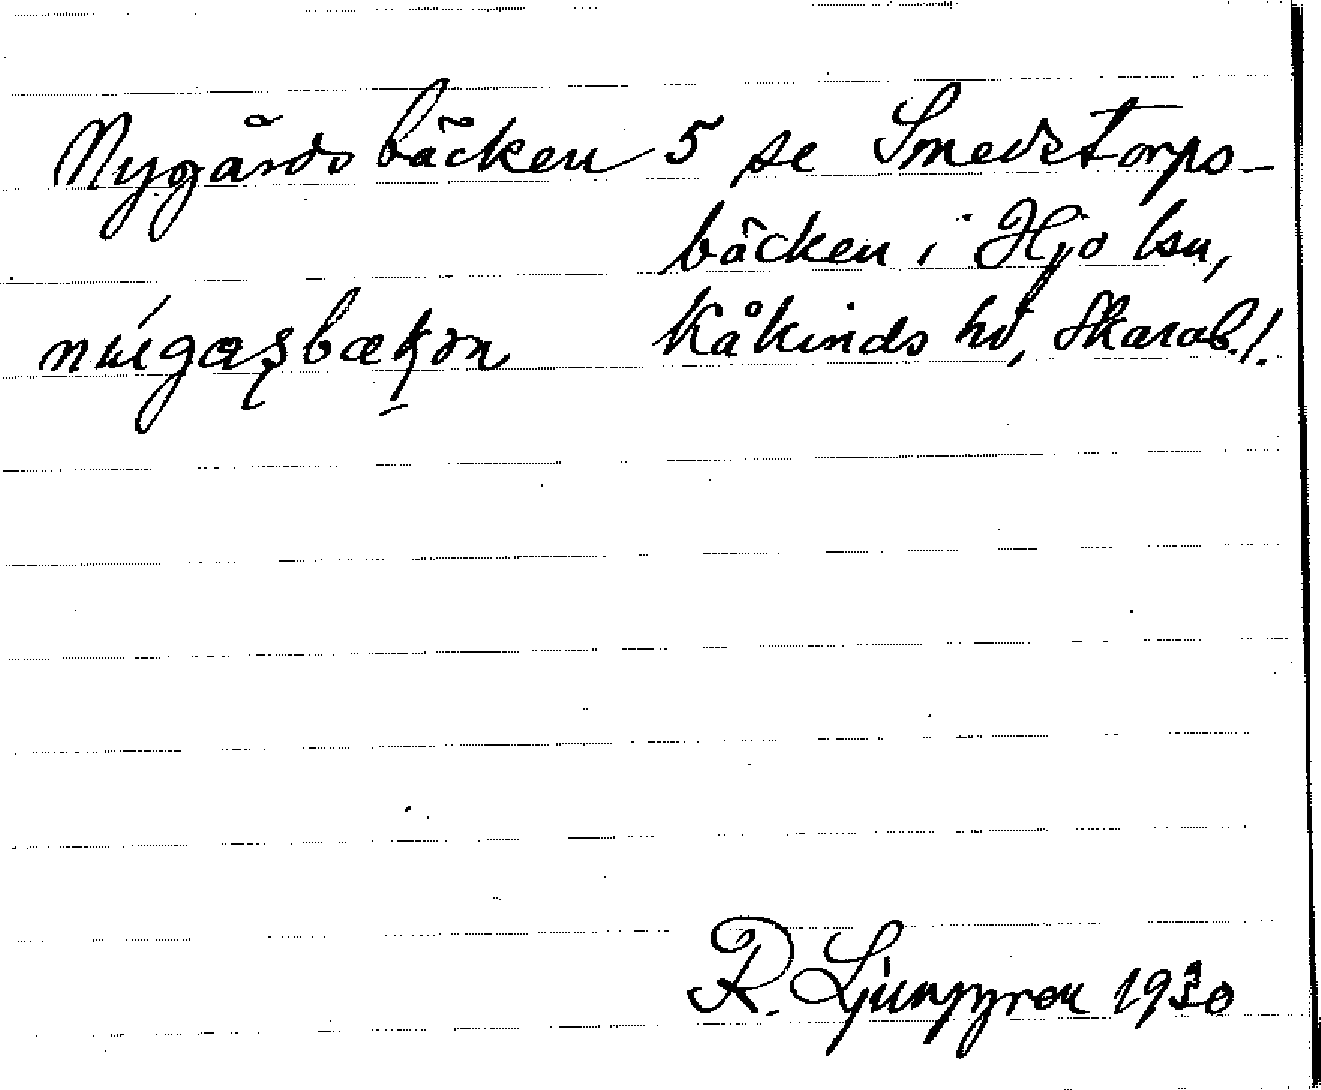 Nygårdsbäcken 5 se Smedstorps-
bäcken i Hjo lsn,
Kåkinds hd, Skarab. l.
R. Ljunggren 1930